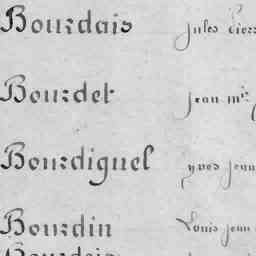 Bourdais Jules Pierr
Bourdet Jean Mie
Bourdiguel Yves Jean
Bourdin Louis Jean